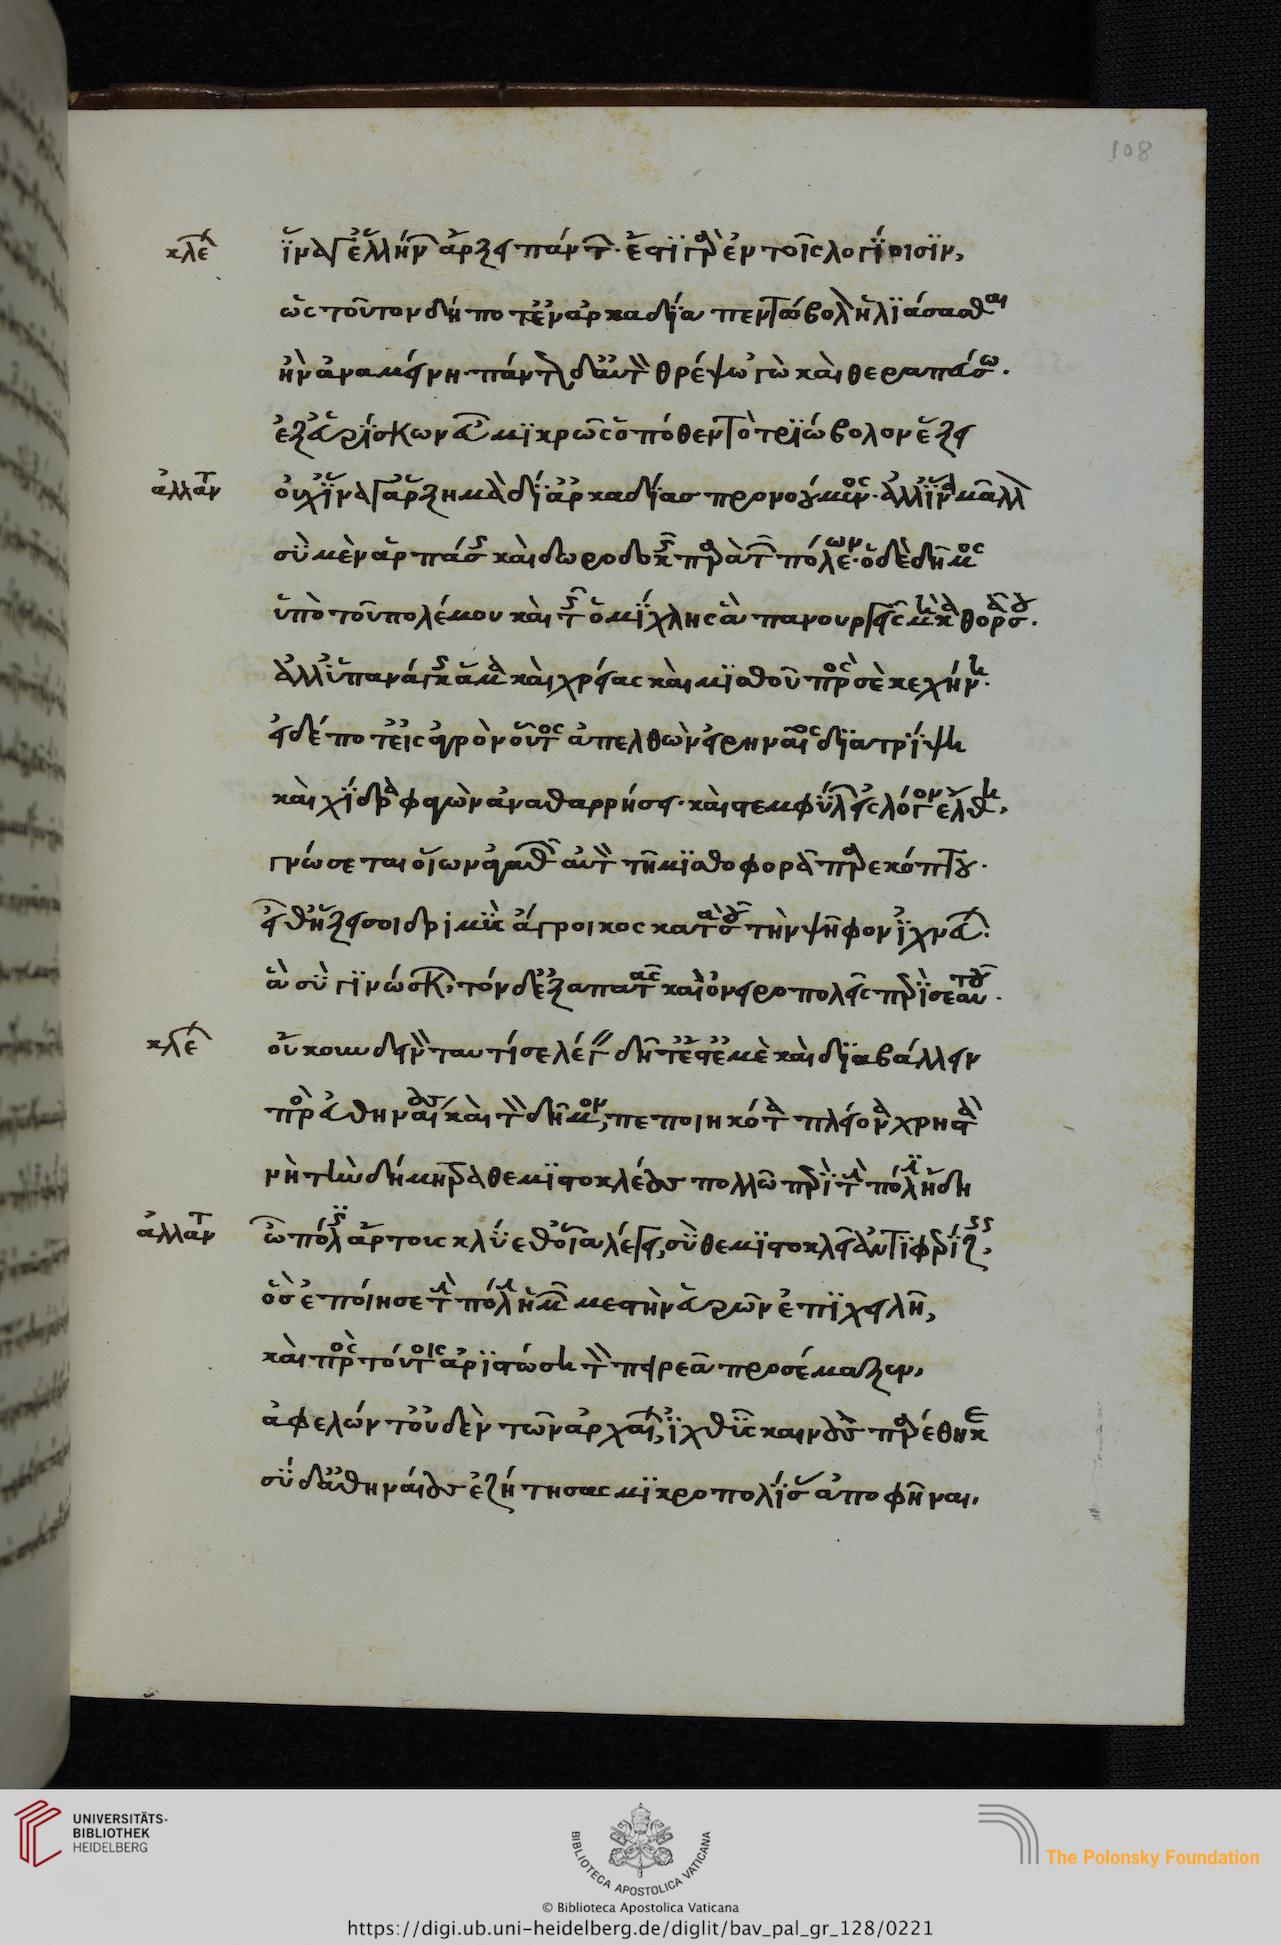 108
κλέ ἵνα γ' ἑλλήνων ἄρξει πάντων· ἔστι γὰρ ἐν τοῖς λογίοισιν,
ὡς τοῦτον δήποτ' ἐν ἀρκαδία πεντώβολον ἡλιάσασθαι
ἢν ἀναμείνη· πάντως δ' αὐτὸν θρέψω 'γὼ καὶ θεραπεύσω.
ἐξευρίσκων εὖ μικρῶς ὁπόθεν τὸ τριώβολον ἕξει
ἀλλαν οὐχ ἵνα γ' ἄρξη μὰ δί' ἀρκαδίας προνοούμενος· ἀλλ' ἵνα μᾶλλον
σὺ μὲν ἁρπάζης καὶ δωροδοκῆς παρὰ τῶν πόλεων· ὁ δὲ δῆμος
ὑπὸ τοῦ πολέμου καὶ τῆς ὁμίχλης ἃ πανουργεῖς μὴ καθορᾶ σου.
ἀλλ' ὑπ' ἀνάγκης ἅμα καὶ χρείας καὶ μισθοῦ πρός σε κεχήνη.
εἰ δέ ποτ' εἰς ἀγρὸν οὗτος ἀπελθὼν εἰρηναῖος διατρίψη
καὶ χίδρα φαγὼν ἀναθαρρήση· καὶ στεμφύλω εἰς λόγον ἔλθη,
γνώσεται οἵων ἀγαθῶν αὐτὸν τῆ μισθοφορᾶ παρεκόπτου.
εἶθ' ἥξει σοι δριμὺς ἄγροικος κατὰ σοῦ τὴν ψῆφον ἰχνεύων.
ἃ σὺ γινώσκων τόνδ' ἐξαπατᾶς καὶ ὀνειροπολεῖς περὶ σεαυτοῦ.
κλέ οὔκουν δεινὸν ταυτί σε λέγειν δῆτ' ἔστ' ἐμὲ καὶ διαβάλλειν
πρὸς ἀθηναίους καὶ τὸν δῆμον, πεποιηκότα πλείονα χρηστὰ
νὴ τὴν δήμητρα θεμιστοκλέους πολλῶ περὶ τὴν πόλιν ἤδη
ἀλλαν ὦ πόλις ἄργους κλύεθ' οἷα λέγει, σὺ θεμιστοκλεῖ ἀντιφερίζεις,
ὃς ἐποίησε τὴν πόλιν ἡμῶν μεστὴν εὑρὼν ἐπιχειλῆ,
καὶ πρὸς τούτοις ἀριστώση τὸν πειρεᾶ προσέμαξεν,
ἀφελών τ' οὐδὲν τῶν ἀρχαίων, ἰχθῦς καινοὺς παρέθηκε
σὺ δ' ἀθηναίους ἐζήτησας μικροπολίτας ἀποφῆναι,
UNIVERSITÄTS-
BIBLIOTHEK
HEIDELBERG
BIBLIOTECA APOSTOLICA VATICANA
The Polonsky Foundation
© Biblioteca Apostolica Vaticana
https://digi.ub.uni-heidelberg.de/diglit/bav_pal_gr_128/0221